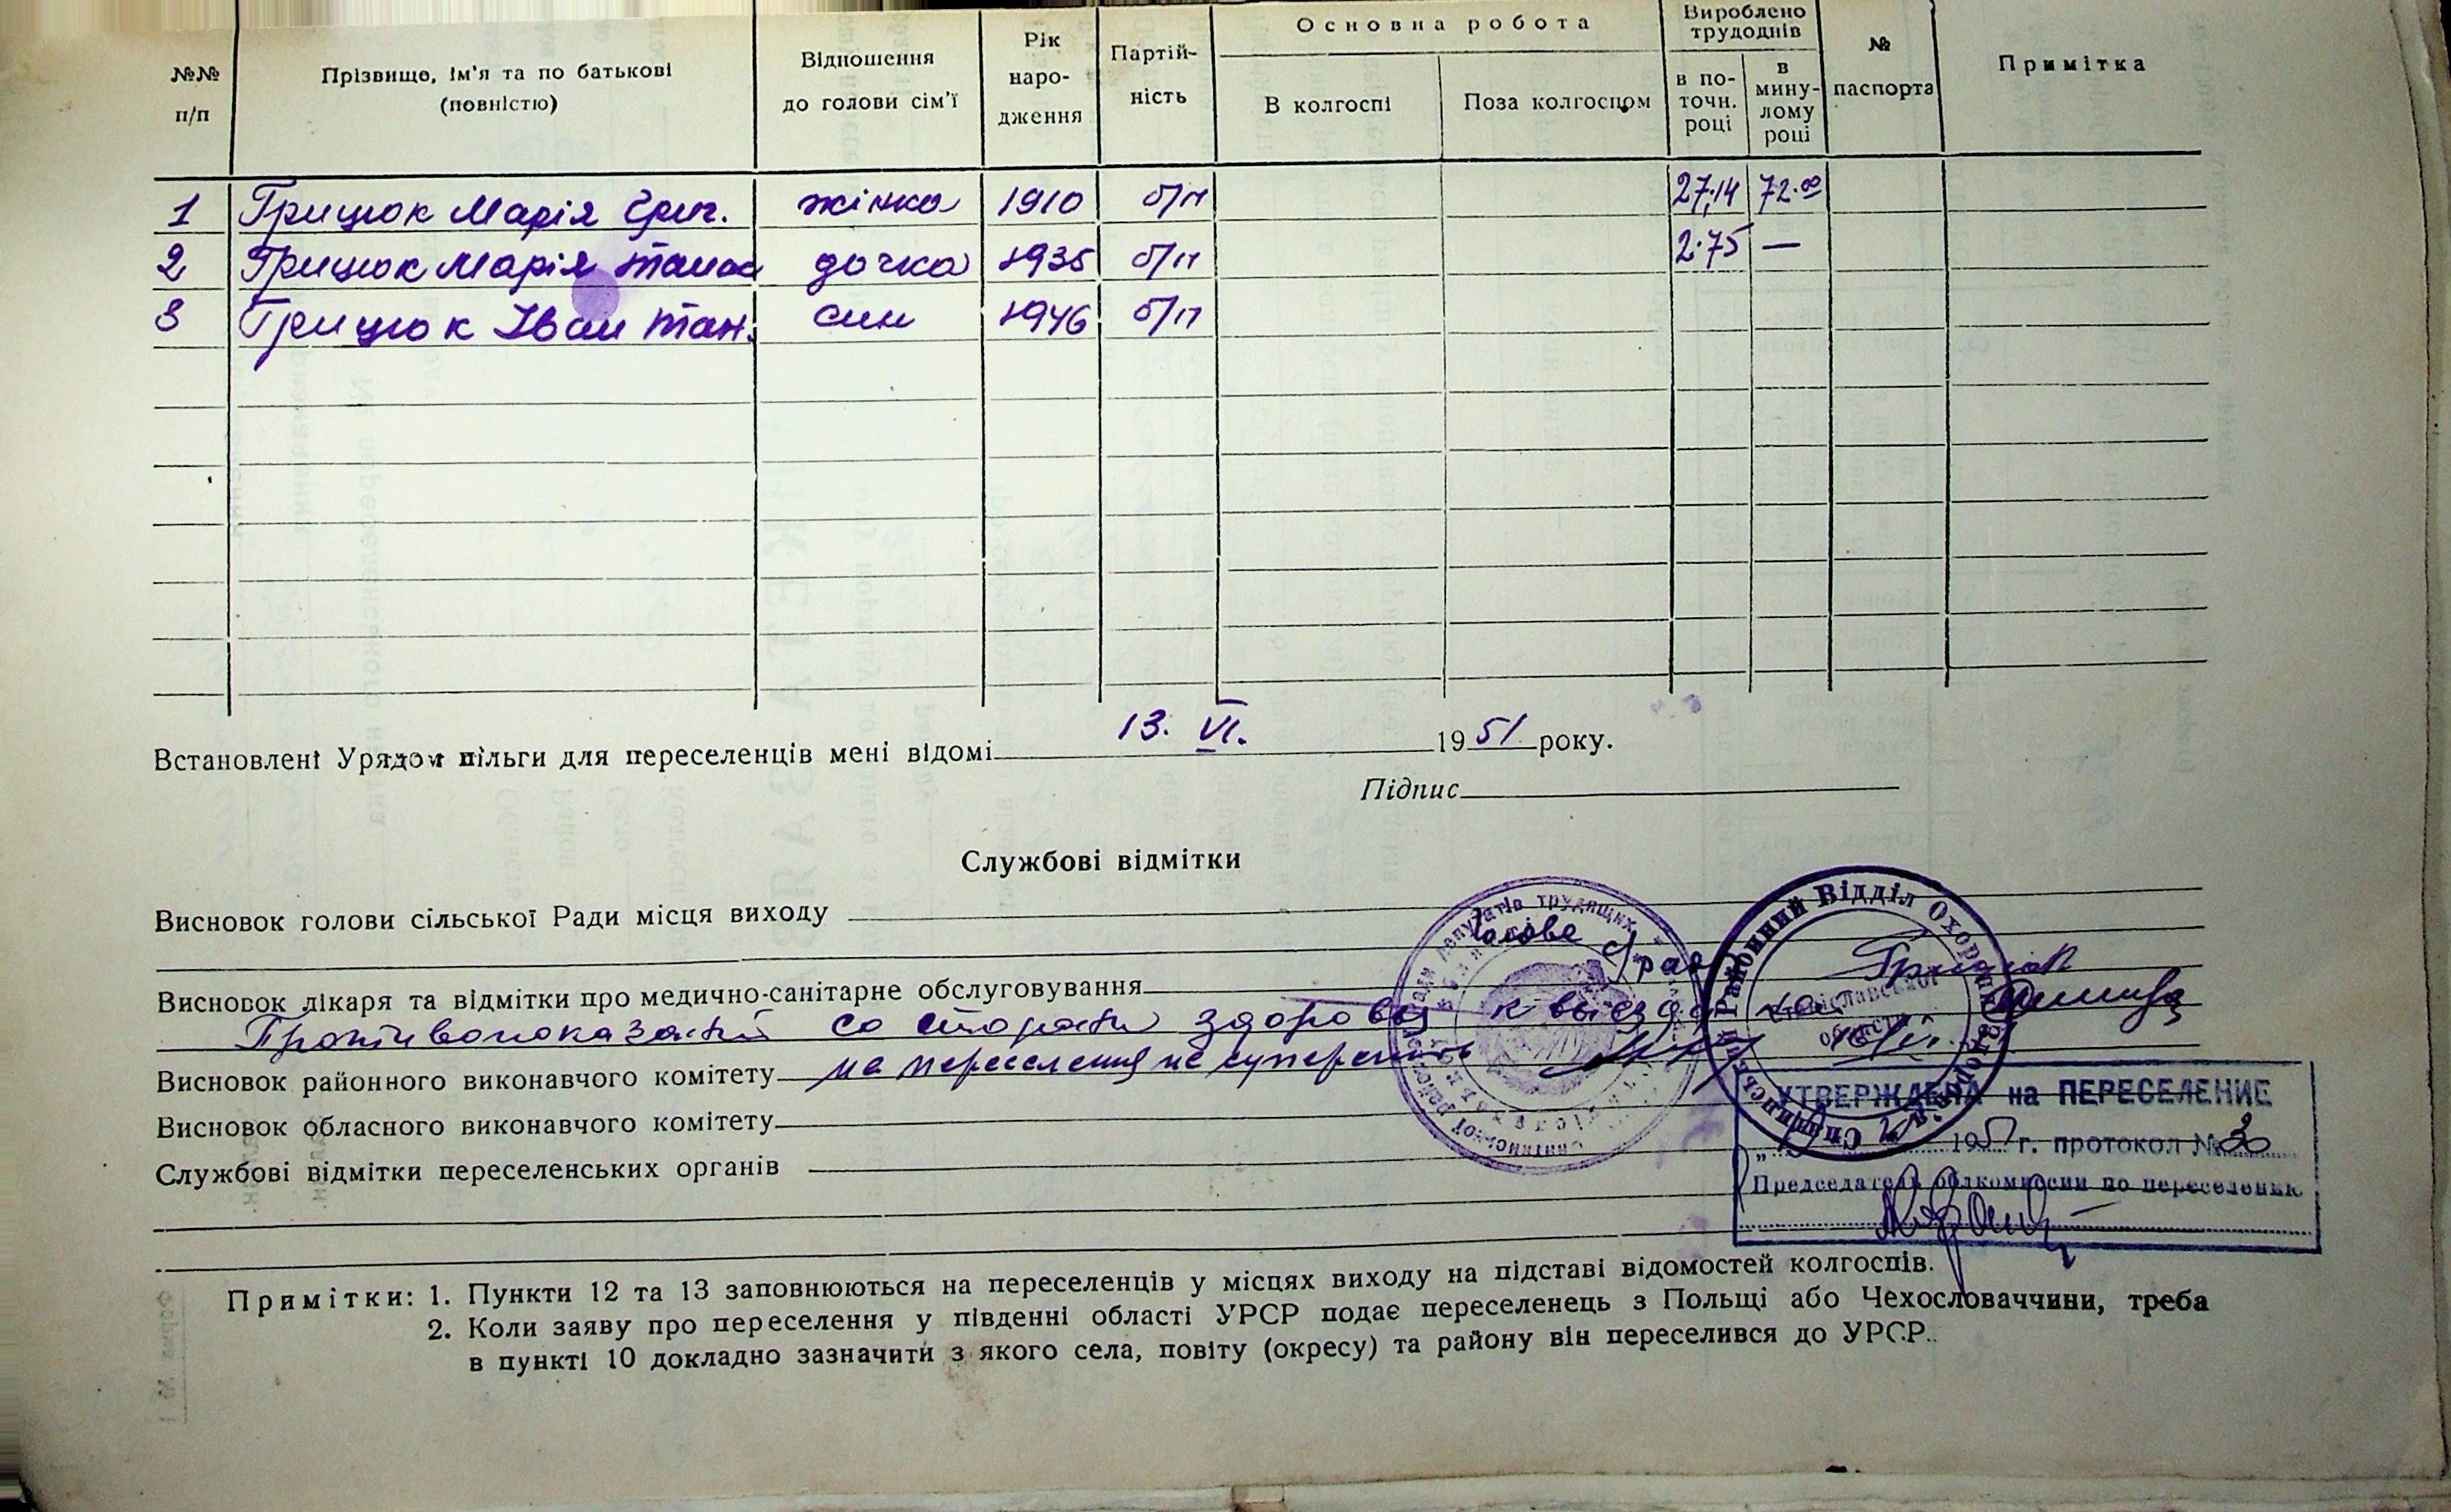 №№ п/п
Прізвище, ім'я та по батькові (повністю)
Відношення до голови сім'ї
Рік народження
Партійність
Основна робота
В колгоспі
Поза колгоспом
Вироблено трудоднів
в поточн. році
в минулому році
№ паспорта
Примітка
1 Грицюк Марія Григ. жінка 1910 б/п 27,14 72.00
2 Грицюк Марія Танас дочка 1935 б/п 2.75 —
3 Грицюк Іван Тан. син 1946 б/п
Встановлені Урядом пільги для переселенців мені відомі 13. VI. 1951 року.
Підпис
Службові відмітки
Висновок голови сільської Ради місця виходу
Висновок лікаря та відмітки про медично-санітарне обслуговування
Противопоказаний со стороны здоровья к выезду
Висновок районного виконавчого комітету на переселення не суперечить
Висновок обласного виконавчого комітету
Службові відмітки переселенських органів
Районний Відділ Охорони
УТВЕРЖДЕНА на ПЕРЕСЕЛЕНИЕ
1951 г. протокол №
Председатель облкомиссии по переселению
Примітки: 1. Пункти 12 та 13 заповнюються на переселенців у місцях виходу на підставі відомостей колгоспів.
2. Коли заяву про переселення у південні області УРСР подає переселенець з Польщі або Чехословаччини, треба
в пункті 10 докладно зазначити з якого села, повіту (окресу) та району він переселився до УРСР.